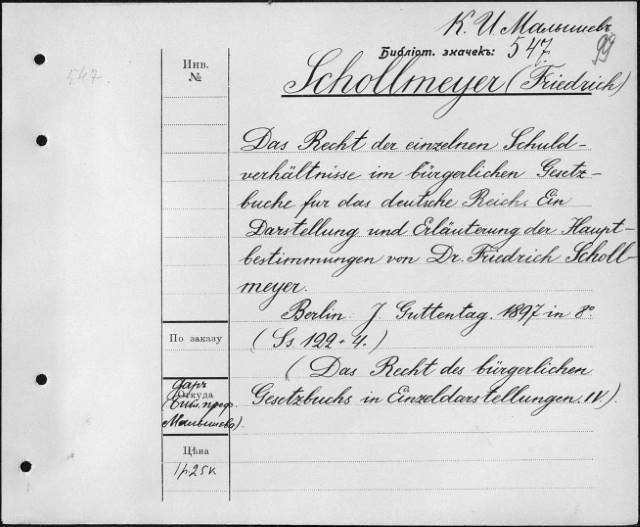 К. И. Малышевъ
Библіот. значекъ: 547. 99
547.
Инв.
№
Schollmeyer (Friedrich)
Das Recht der einzelnen Schuld-
verhältnisse im bürgerlichen Gesetz-
buche fur das deutsche Reich. Ein
Darstellung und Erläuterung der Haupt-
bestimmungen von Dr. Friedrich Scholl-
meyer.
Berlin J. Guttentag. 1897 in 8º
(Ss. 122 + 4.)
(Das Recht des bürgerlichen
Gesetzbuchs in Einzeldarstellungen. IV).
По заказу
Даръ
Откуда
(Библ. проф.
Малышева).
Цѣна
1 р 25 к